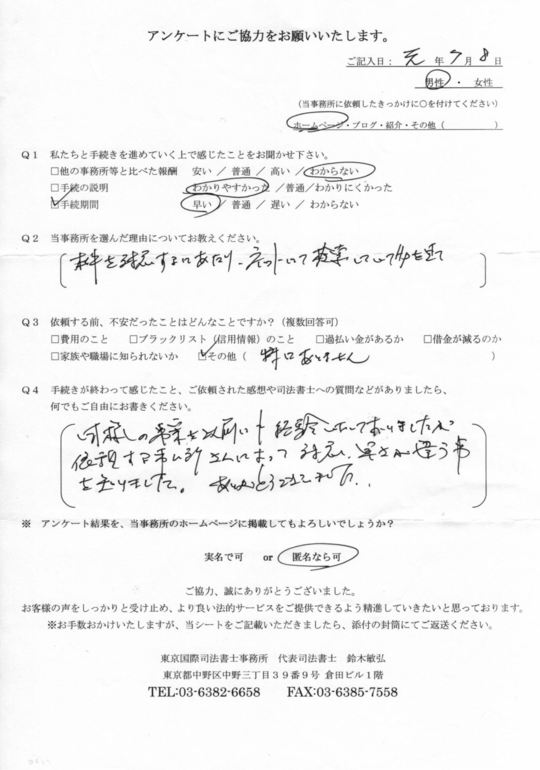 アンケートにご協力をお願いいたします。
ご記入日： 元 年 7 月 8 日
男性 ・ 女性
（当事務所に依頼したきっかけに○を付けてください）
ホームページ・ブログ・紹介・その他（ ）
Ｑ１ 私たちと手続きを進めていく上で感じたことをお聞かせ下さい。
□他の事務所等と比べた報酬 安い ／ 普通 ／ 高い ／ わからない
□手続の説明 わかりやすかった ／普通／わかりにくかった
☑手続期間 早い ／ 普通 ／ 遅い ／ わからない
Ｑ２ 当事務所を選んだ理由についてお教えください。
本件を するにあたり、ネットにて検索して
Ｑ３ 依頼する前、不安だったことはどんなことですか？（複数回答可）
□費用のこと □ブラックリスト（信用情報）のこと □過払い金があるか □借金が減るのか
□家族や職場に知られないか ☑その他（ 特にありません ）
Ｑ４ 手続きが終わって感じたこと、ご依頼された感想や司法書士への質問などがありましたら、
何でもご自由にお書きください。
の 以前に 経験しておりましたが
依頼する事ム所さんによって 違う事
を知りました。 ありがとうございました。
※ アンケート結果を、当事務所のホームページに掲載してもよろしいでしょうか？
実名で可 or 匿名なら可
ご協力、誠にありがとうございました。
お客様の声をしっかりと受け止め、より良い法的サービスをご提供できるよう精進していきたいと思っております。
※お手数おかけいたしますが、当シートをご記載いただきましたら、添付の封筒にてご返送ください。
東京国際司法書士事務所 代表司法書士 鈴木敏弘
東京都中野区中野三丁目３９番９号 倉田ビル１階
TEL:03-6382-6658 FAX:03-6385-7558